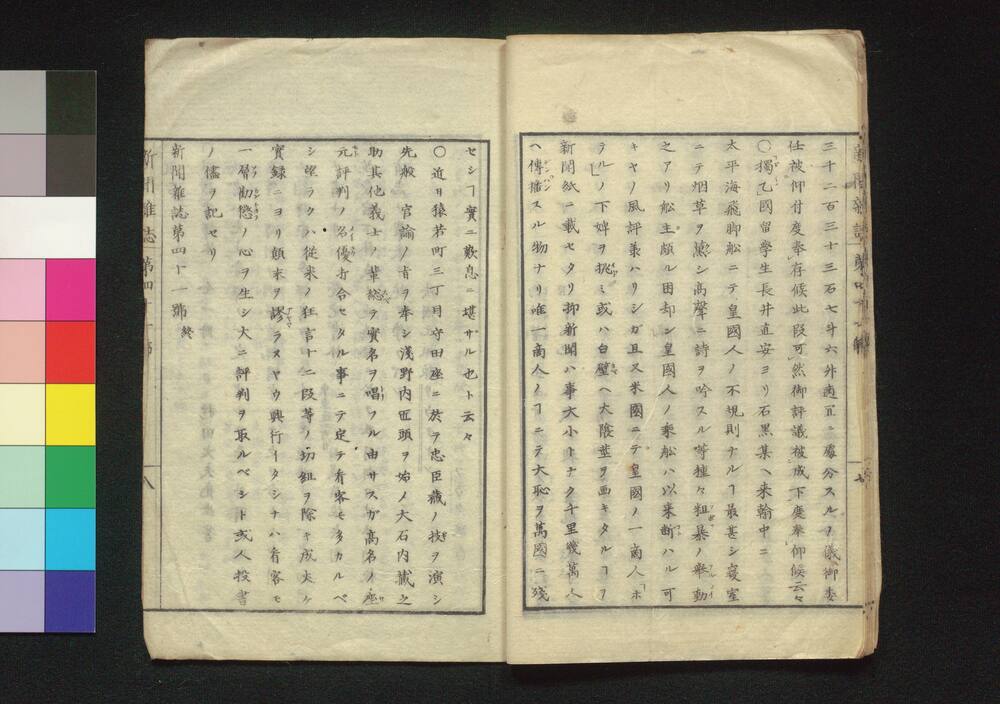 三十二百三十三石七斗六升適宜ニ處分スルノ儀御委
任被仰付度奉存候此段可然御評議被成下度奉仰候云々
〇獨乙國留學生長井直安ヨリ石黒某ヘ来翰中ニ
太平海飛脚舩ニテ皇國人ノ不規則ナルヿ最甚シ寝室
ニテ烟草ヲ薫シ高聲ニ詩ヲ吟スル等種々粗暴ノ舉動
之アリ舩主頗ル困却シ皇國人ノ乘舩ハ以来断ハル可
キヤノ風評兼ハリシガ且又米國ニテ皇國ノ一商人「ホ
テル」ノ下婢ヲ挑ミ或ハ白壁ヘ大陰莖ヲ画キタルヿヲ
新聞紙ニ載セタリ抑新聞ハ事大小トナク千里幾萬人
ヘ傳播スル物ナリ唯一商人ノヿニテ大恥ヲ萬國ニ殘
セシヿ實ニ歎息ニ堪ザル也ト云々
〇近日猿若町三丁目守田座ニ於テ忠臣蔵ノ技ヲ演シ
先般 官諭ノ旨ヲ奉シ浅野内匠頭ヲ始ノ大石内蔵之
助其他義士ノ輩総テ實名ヲ唱フル由サスガ高名ノ座
元評判ノ名優打合セタル事ニテ定テ看客モ多カルベ
シ望ラクハ從来ノ狂言十二段等ノ切組ヲ除キ成丈ケ
實録ニヨリ顛末ヲ謬ラヌヤウ興行イタシナハ看客モ
一層勸懲ノ心ヲ生シ大ニ評判ヲ取ルベシト或人投書
ノ儘ヲ記セリ
新聞雜誌第四十一號終
新聞雜誌 第四十一號 八